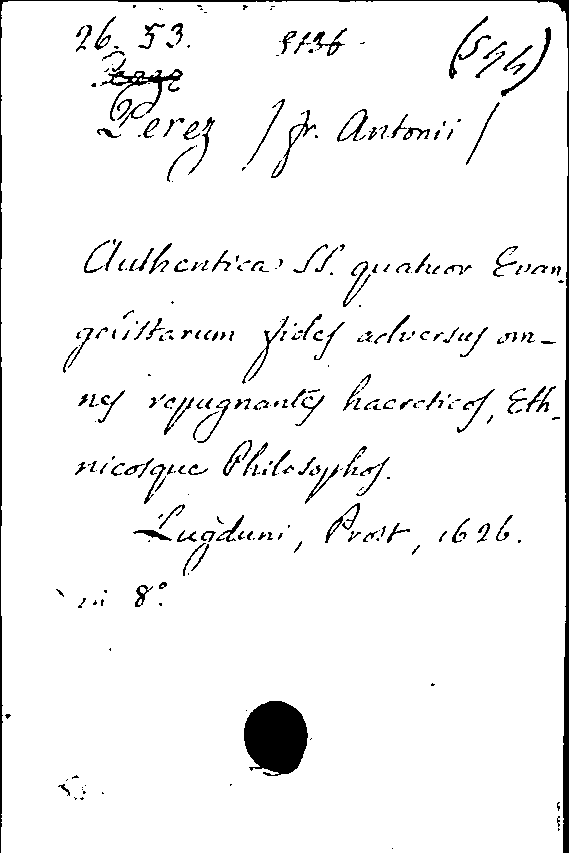 26. 53. 9136. (544)
Perez
Perez / fr. Antonii /
Authentica SS. quatuor Evan-
gelistarum fides adversus om-
nes repugnantes haereticos, Eth-
nicosque Philosophos.
Lugduni, Prost, 1626.
in 8°.